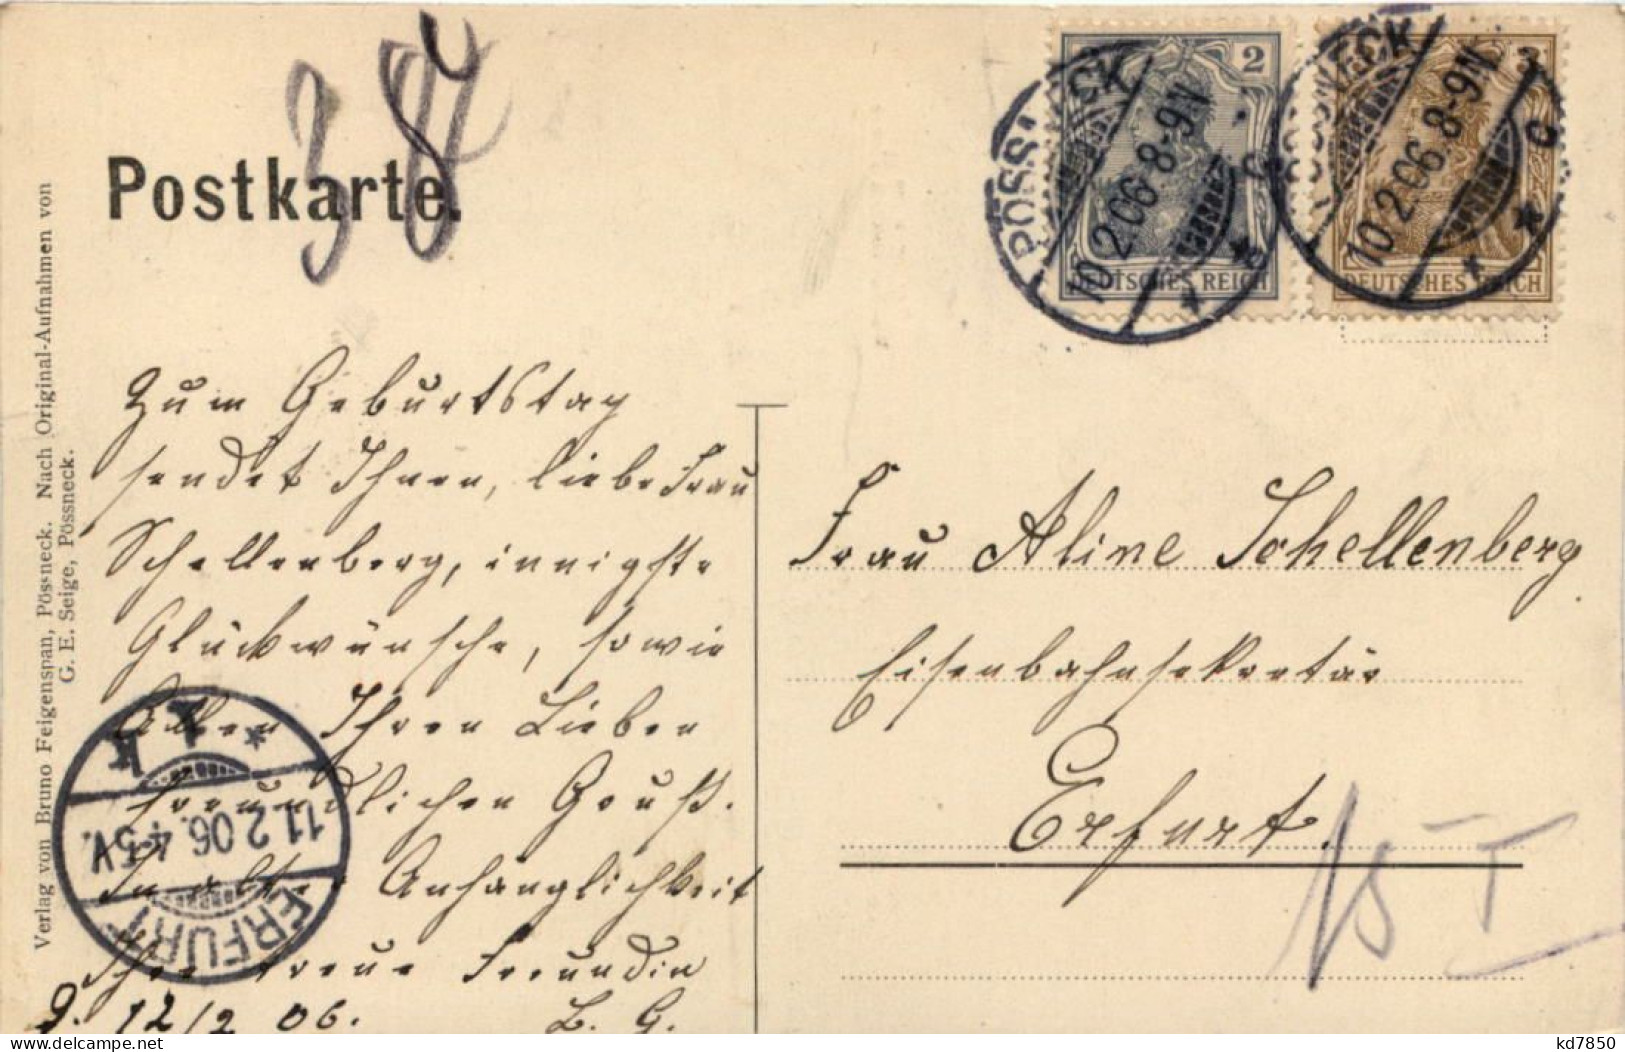 Postkarte.
38
Verlag von Bruno Feigenspan, Pössneck. Nach Original-Aufnahmen von
G. E. Seige, Pössneck.
2
DEUTSCHES REICH
3
DEUTSCHES REICH
PÖSSNECK
10.2.06.8-9N.
PÖSSNECK
10.2.06.8-9N.
C
Zum Geburtstag
sendet Ihnen, liebe Frau
Schellenberg, innigste
Glückwünsche, sowie
Allen Ihren Lieben
freundlichen Gruß.
In alter Anhänglichkeit
Ihre treue Freundin
12/2 06. L. G.
ERFURT
11.2.06.4-5V.
1 k
Frau Aline Schellenberg
Eisenbahnsekretär
Erfurt.
kd7850